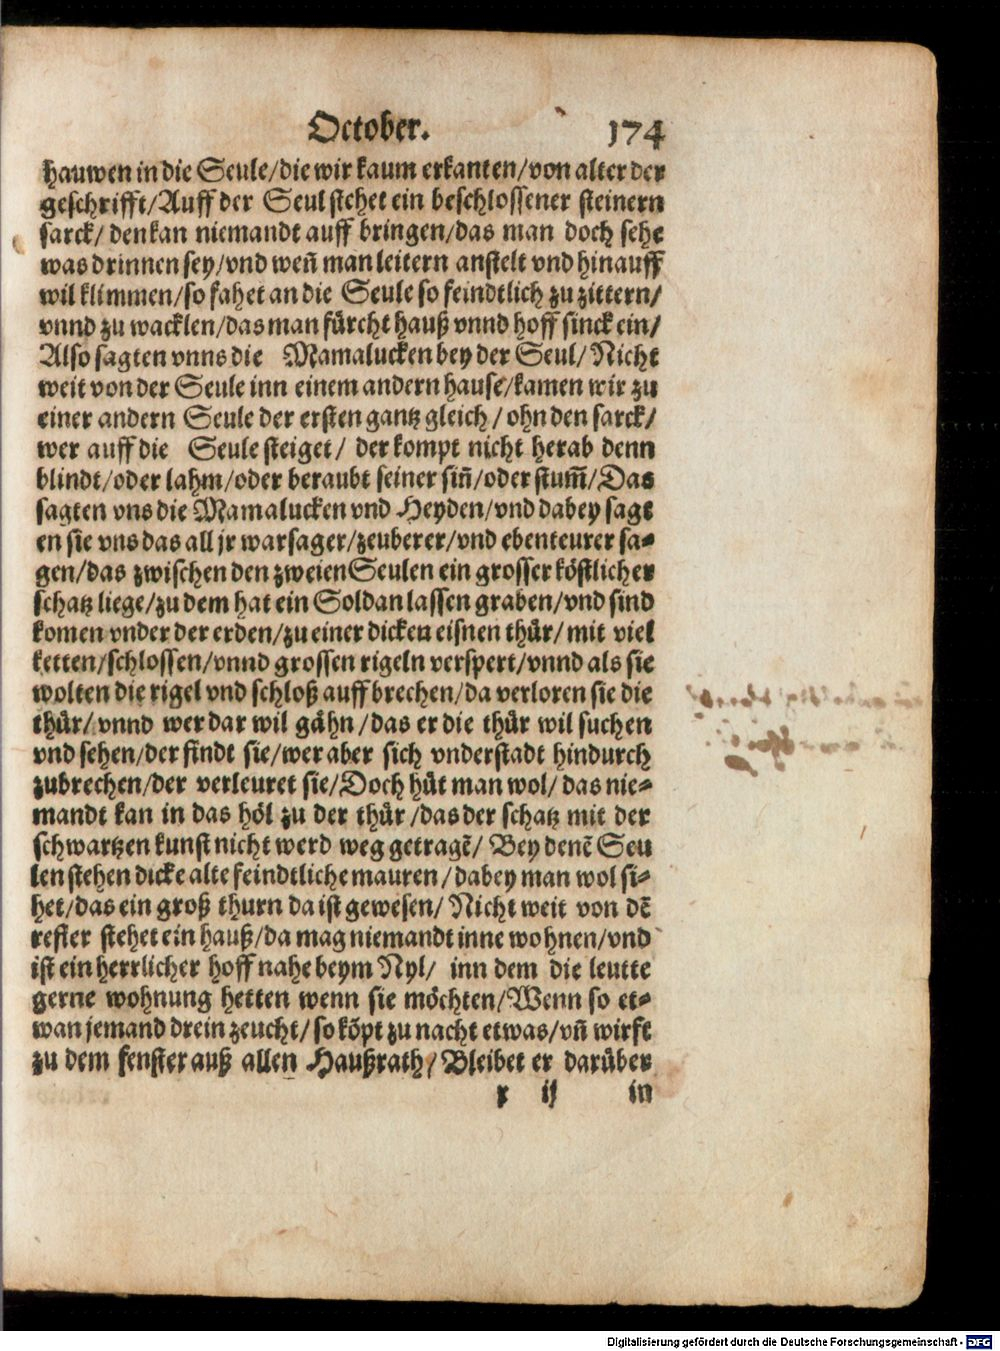 October. 174
hauwen in die Seule/die wir kaum erkanten/von alter der
geschrifft/Auff der Seul stehet ein beschlossener steinern
sarck/ den kan niemandt auff bringen/das man doch sehe
was drinnen sey/vnd weñ man leitern anstelt vnd hinauff
wil klimmen/so fahet an die Seule so feindtlich zu zittern/
vnnd zu wacklen/das man fürcht hauß vnnd hoff sinck ein/
Also sagten vnns die Mamalucken bey der Seul/Nicht
weit von der Seule inn einem andern hause/kamen wir zu
einer andern Seule der ersten gantz gleich/ohn den sarck/
wer auff die Seule steiget/ der kompt nicht herab denn
blindt/oder lahm/oder beraubt seiner siñ/oder stum̃/Das
sagten vns die Mamalucken vnd Heyden/vnd dabey sagt
en sie vns das all jr warsager/zeuberer/vnd ebenteurer sa⸗
gen/das zwischen den zweien Seulen ein grosser köstlicher
schatz liege/zu dem hat ein Soldan lassen graben/vnd sind
komen vnder der erden/zu einer dicken eisnen thür/mit viel
ketten/schlossen/vnnd grossen rigeln verspert/vnnd als sie
wolten die rigel vnd schloß auff brechen/da verloren sie die
thür/vnnd wer dar wil gähn/das er die thür wil suchen
vnd sehen/der findt sie/wer aber sich vnderstadt hindurch
zubrechen/der verleuret sie/Doch hüt man wol/das nie⸗
mandt kan in das höl zu der thür/das der schatz mit der
schwartzen kunst nicht werd weg getragẽ/ Bey denẽ Seu
len stehen dicke alte feindtliche mauren/dabey man wol si⸗
het/das ein groß thurn da ist gewesen/Nicht weit von dẽ
refier stehet ein hauß/da mag niemandt inne wohnen/vnd
ist ein herrlicher hoff nahe beym Nyl/ inn dem die leutte
gerne wohnung hetten wenn sie möchten/Wenn so et⸗
wan jemand drein zeucht/so köpt zu nacht etwas/vñ wirft
zu dem fenster auß allen Haußrath/Bleibet er darüber
r ij in
Digitalisierung gefördert durch die Deutsche Forschungsgemeinschaft - DFG